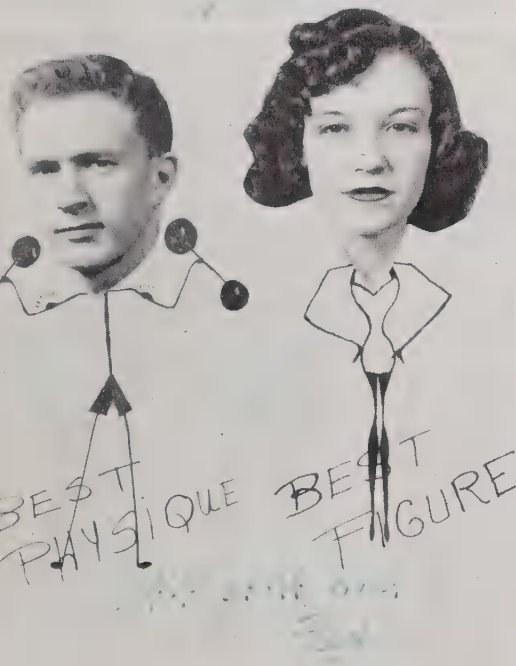 BEST
PHYSIQUE
BEST
FIGURE